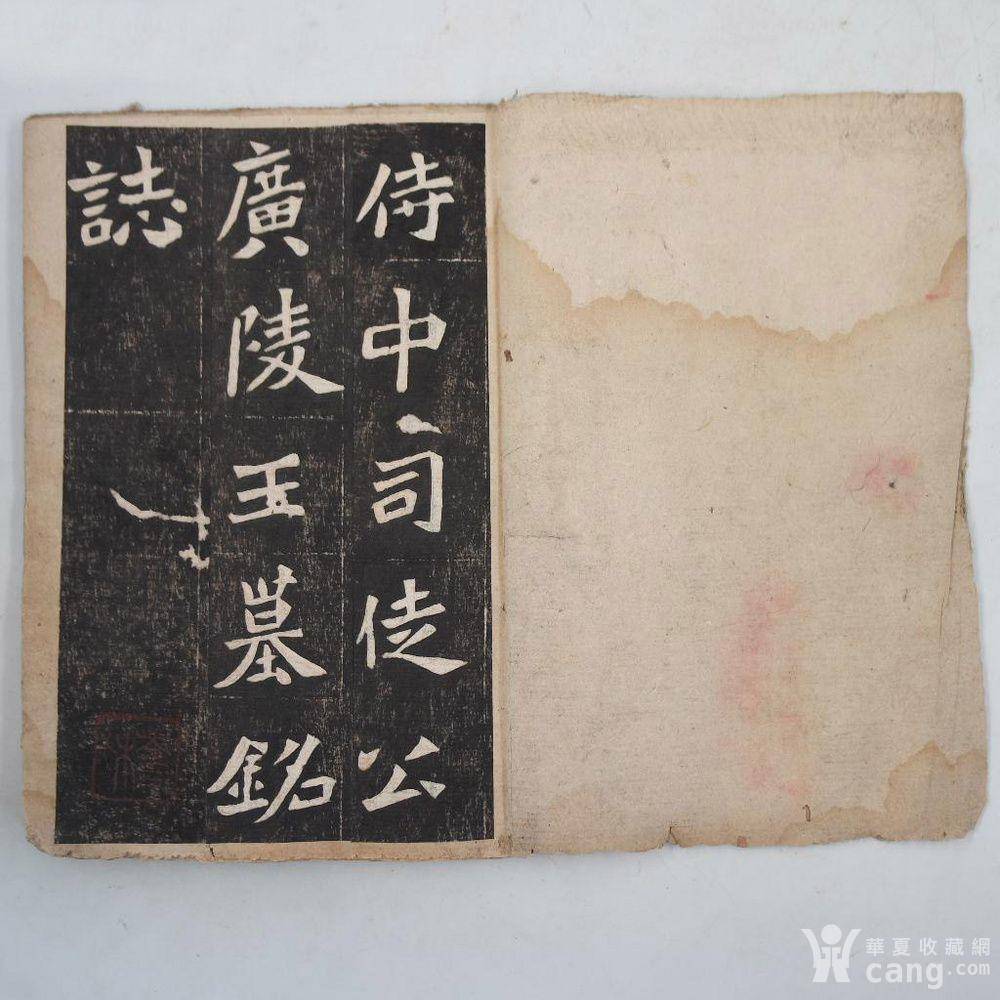 侍中司徒公
廣陵王墓銘
誌
華夏收藏網
cang.com